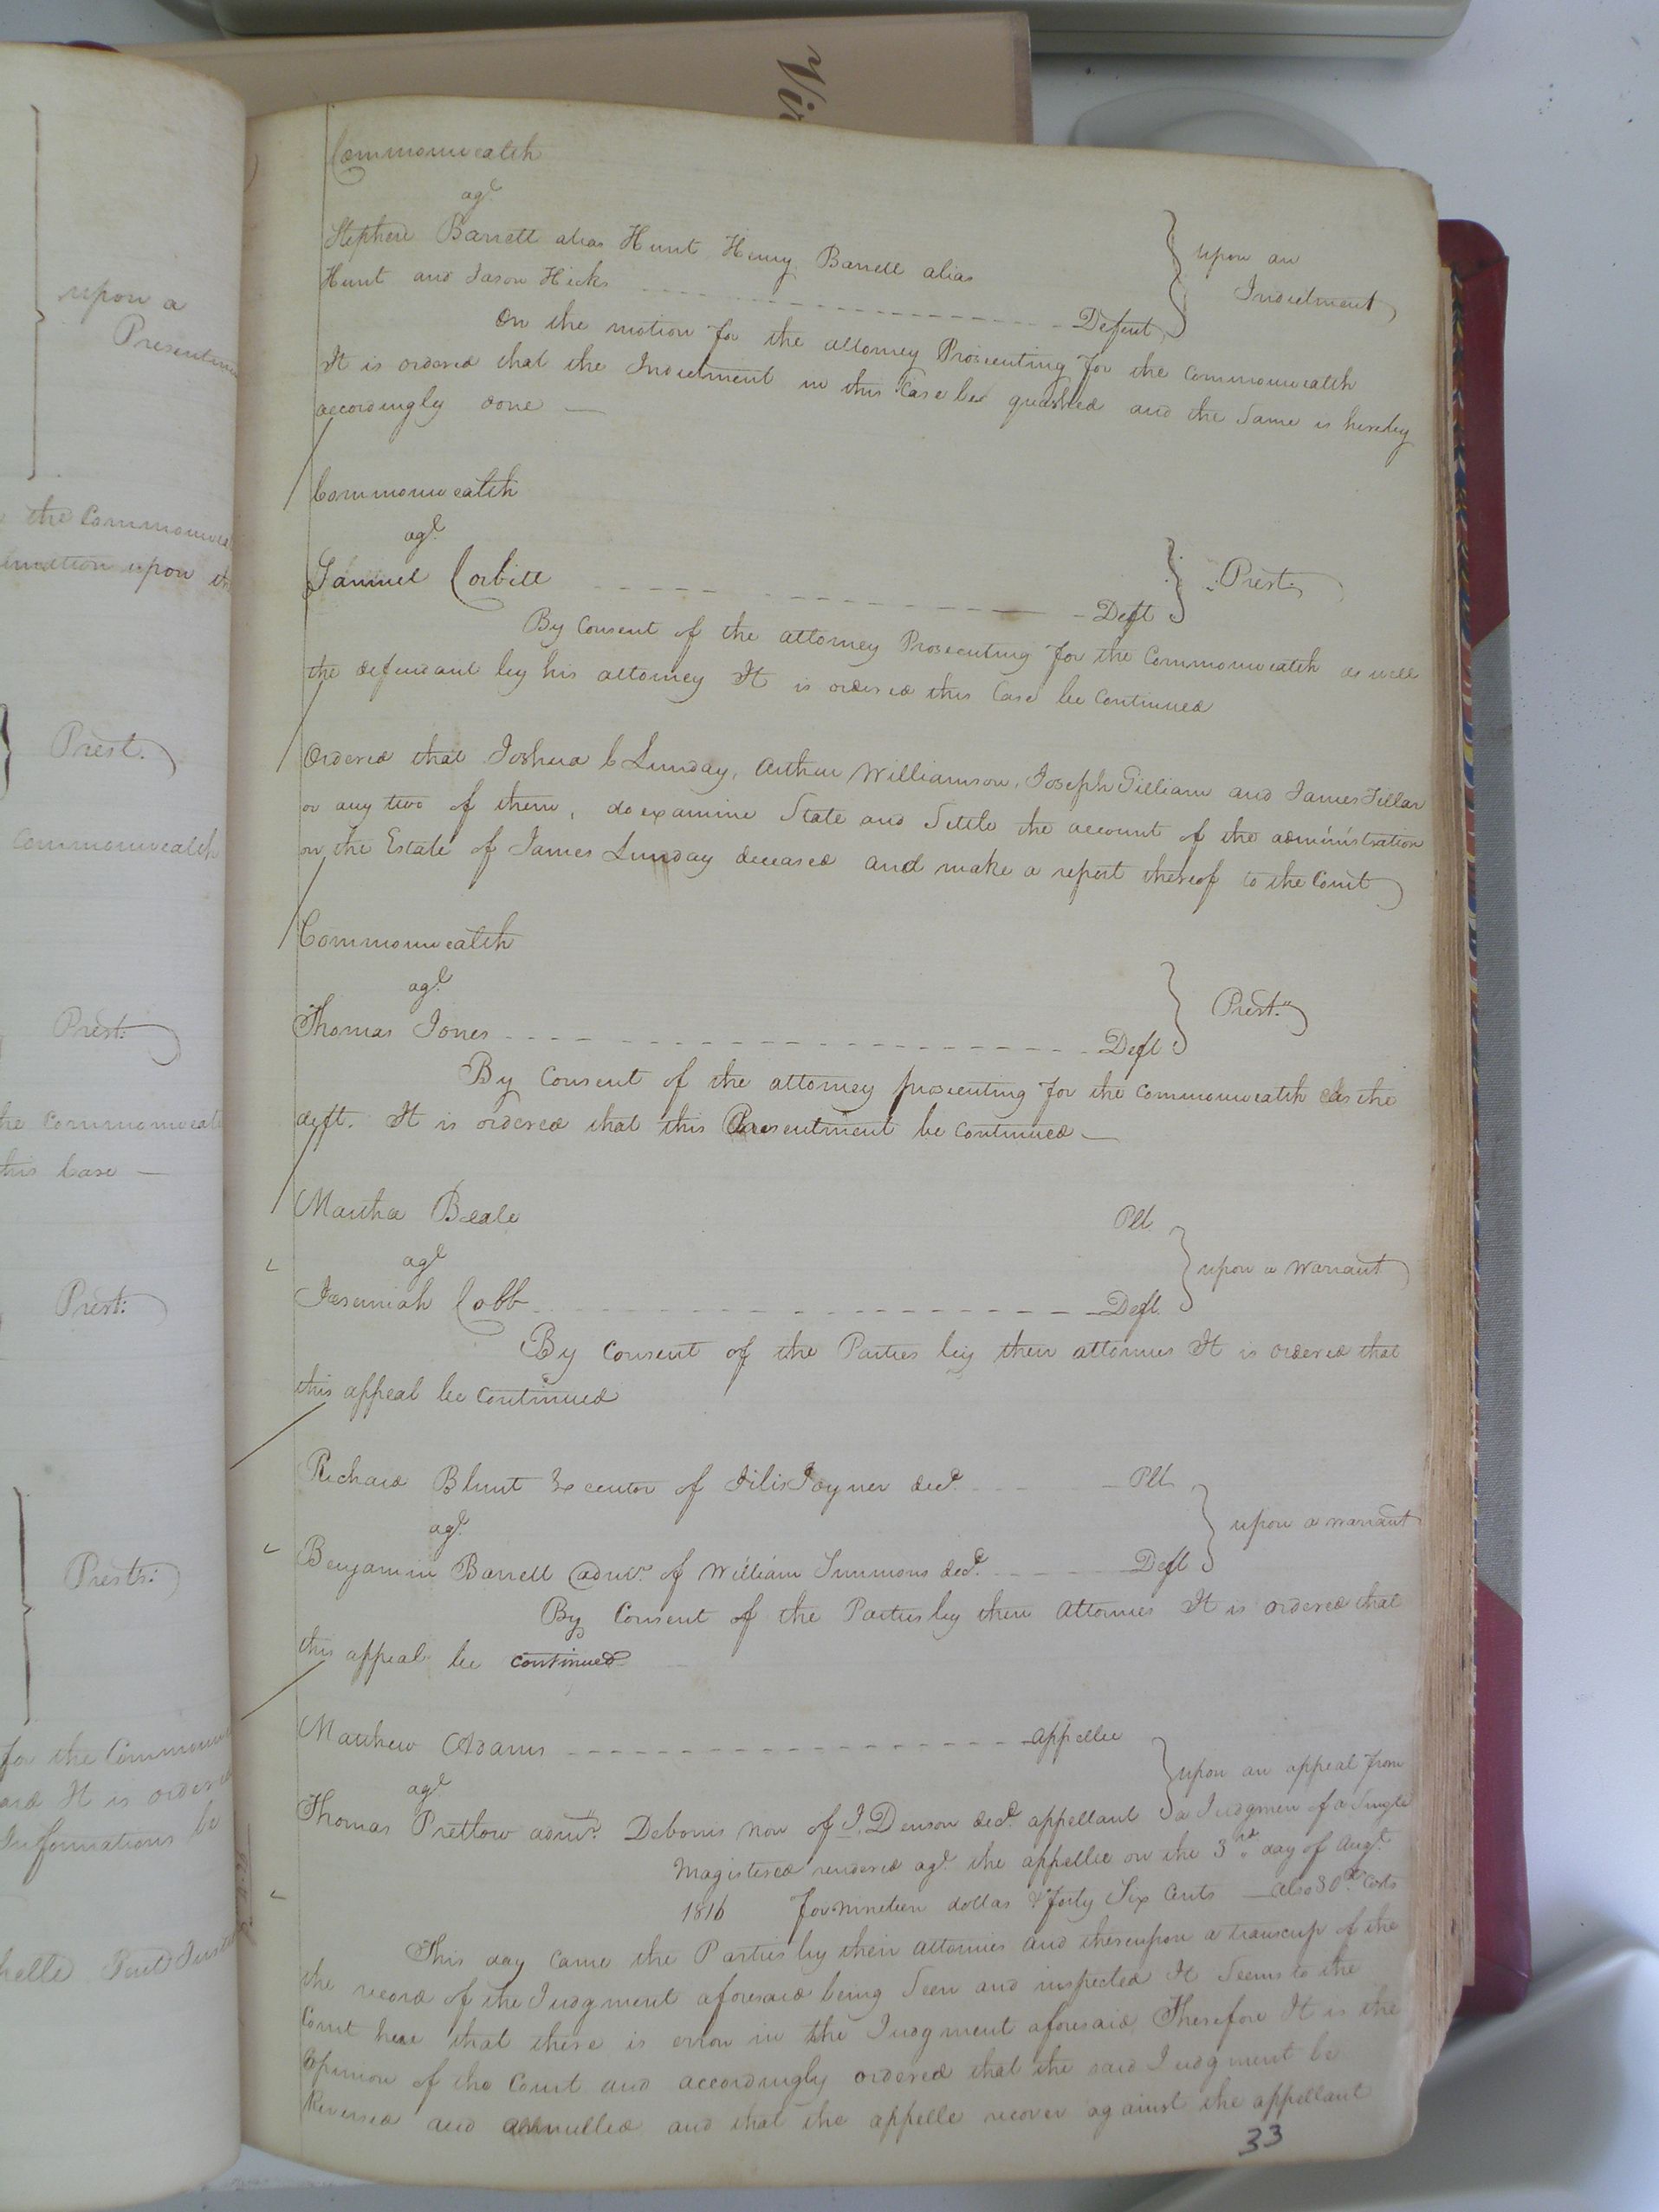 Vir
upon a
Presentm
the Commonwea
upon th
Prest.
Commonwealth
Prest:
he Commonweal
this Case —
Prest:
Prests:
for the Commonw
and It is ordere
Informations be
Commonwealth
agt
Stephen Barrett alias Hunt Henry Barrett alias
Hunt and Jason Hicks Defent
upon an
Indictment
On the motion for the attorney Prosecuting for the Commonwealth
It is ordered that the Indictment in this Case be quashed and the Same is hereby
accordingly done —
Commonwealth
agt
Samuel Corbitt Deft
Prest:
By Consent of the attorney Prosecuting for the Commonwealth as well
the defendant by his attorney It is ordered this Case be Continued
Ordered that Joshua C Lunday, Arthur Williamson, Joseph Gilliam and James Fillar
or any two of them, do examine State and Settle the account of the administration
on the Estate of James Lunday deceased and make a report thereof to the Court
Commonwealth
agt
Thomas Jones Deft
Prest:
By Consent of the attorney prosecuting for the Commonwealth as the
deft. It is ordered that this Presentment be Continued —
Martha Beale Plt
agt
Jeremiah Cobb Deft
upon a Warrant
By Consent of the Parties by their attornies It is ordered that
this appeal be Continued
Richard Blunt Executor of Joyner decd. Plt
agt
Benjamin Barrett admr. of William Simmons decd. Deft
upon a warrant
By Consent of the Parties by their Attornies It is ordered that
this appeal be continued
Matthew Adams appellee
agt
Thomas Pretlow admr. Debonis non of J. Denson decd. appellant
upon an appeal from
a Judgmen of a Single
Magistered rendered agt. the appellee on the 3rd day of Augt.
1816 for nineteen dollas & forty Six Cents — also 30 Costs
This day came the Parties by their attornies and thereupon a transcrip of the
the record of the Judgment aforesaid being Seen and inspected It Seems to the
Court here that there is error in the Judgment aforesaid Therefore It is the
Opinion of the Court and accordingly ordered that the said Judgment be
Reversed and annulled and that the appelle recover against the appellant
33